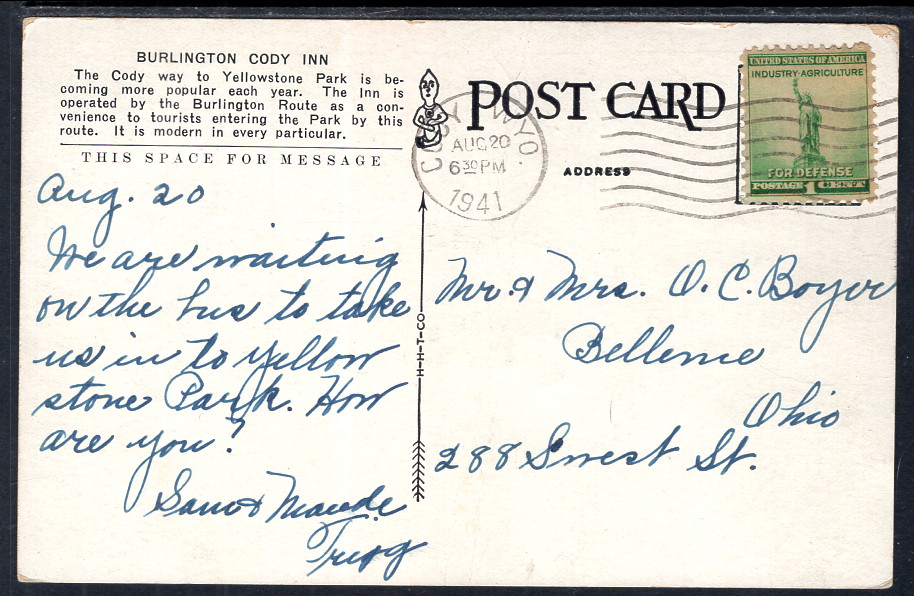 BURLINGTON CODY INN
The Cody way to Yellowstone Park is be-
coming more popular each year. The Inn is
operated by the Burlington Route as a con-
venience to tourists entering the Park by this
route. It is modern in every particular.
THIS SPACE FOR MESSAGE
Aug. 20
We are waiting
on the bus to take
us in to Yellow
stone Park. How
are you?
Sam & Maude
H-H-T-CO
POST CARD
ADDRESS
CODY WYO.
AUG 20
6 30 PM
1941
UNITED STATES OF AMERICA
INDUSTRY·AGRICULTURE
FOR DEFENSE
POSTAGE 1 CENT
Mr. & Mrs. O. C. Boyer
Bellevue
Ohio
288 St.